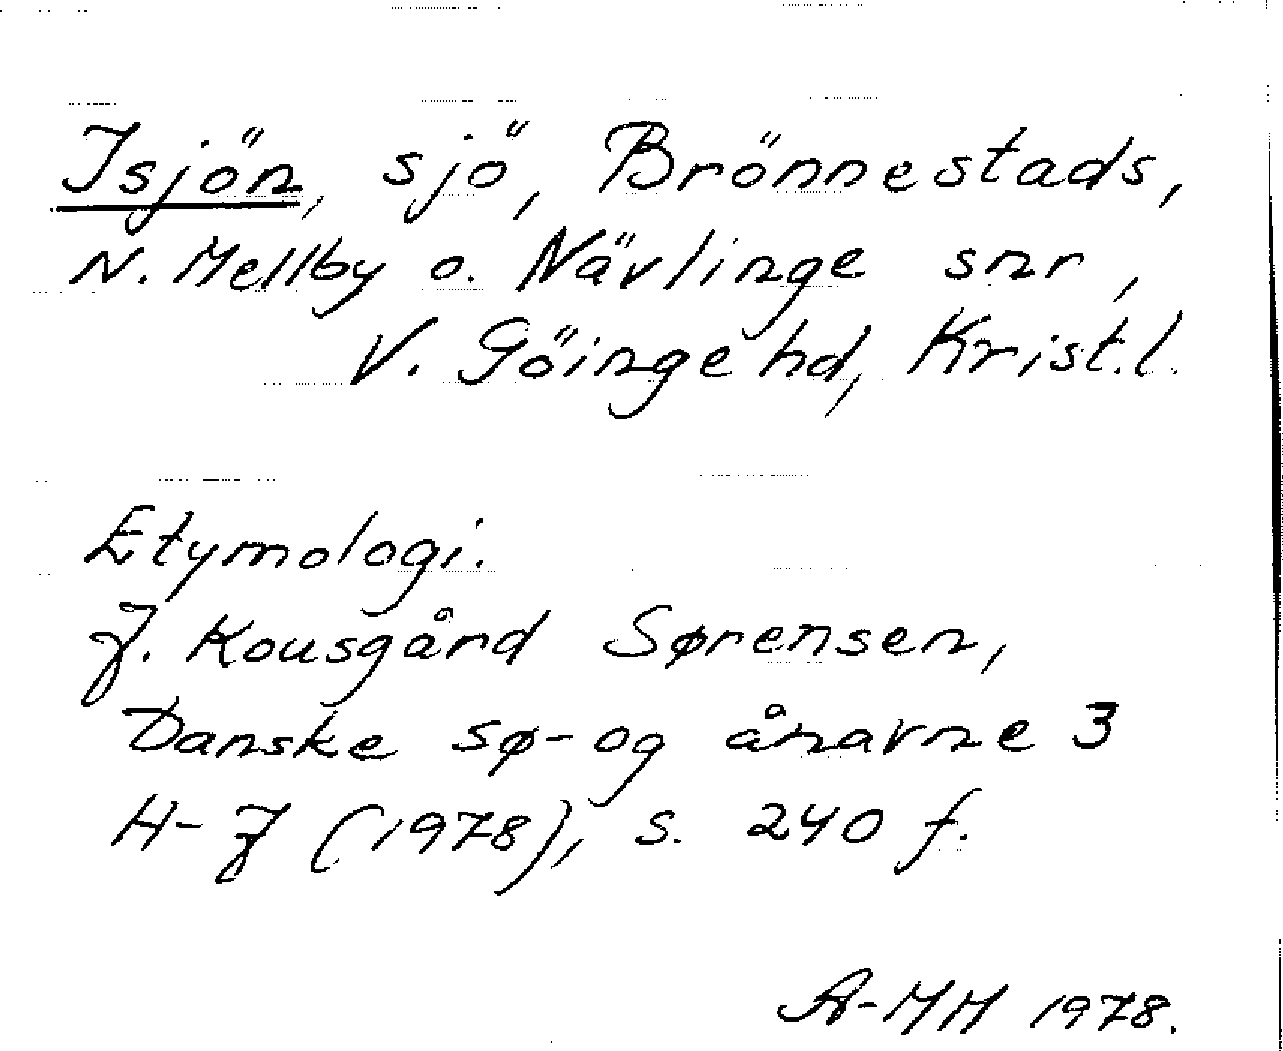 Isjön, sjö, Brönnestads,
N. Mellby o. Nävlinge snr,
V. Göinge hd, Krist.l.
Etymologi.
J. Kousgård Sørensen,
Danske sø- og ånavne 3
H-J (1978), s. 240 f.
A-MH 1978.